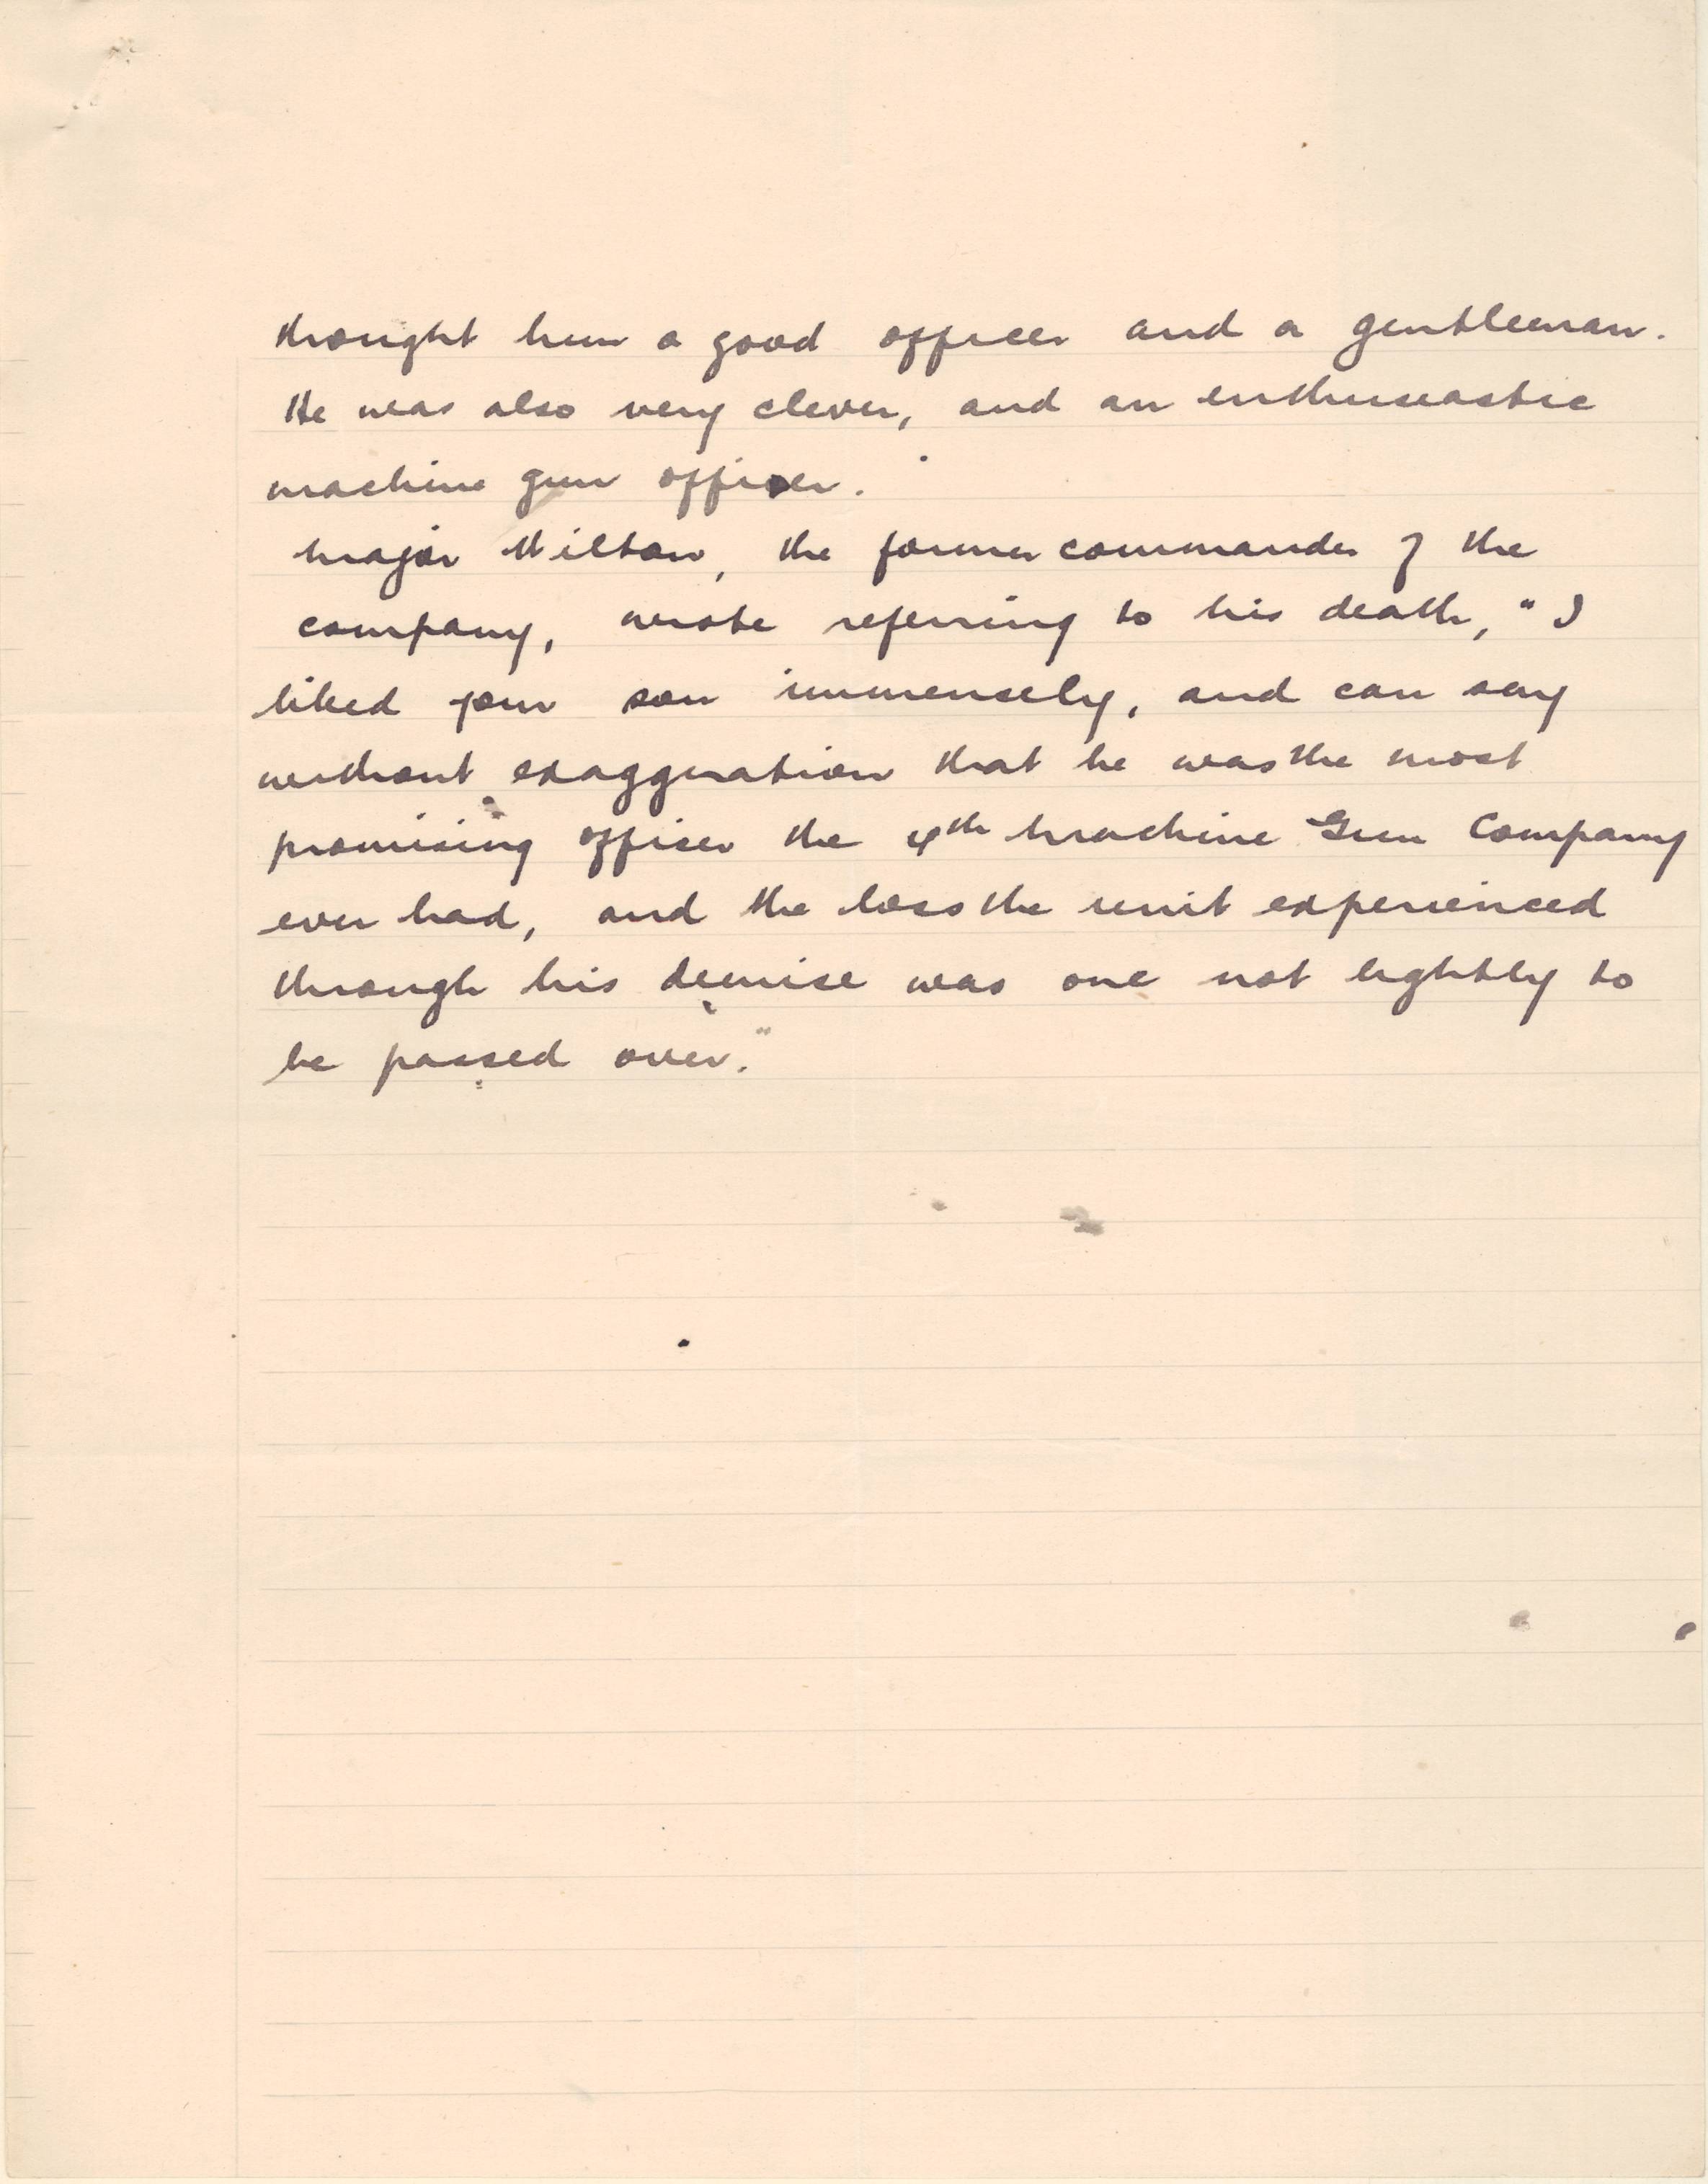 thought him a good officer and a gentleman.
He was also very clever, and an enthusiastic
machine gun officer.
Major Wilton, the former commander of the
company, wrote referring to his death, "I
liked your son immensely, and can say
without exaggeration that he was the most
promising officer the 4th Machine Gun Company
ever had, and the loss the unit experienced
through his demise was one not lightly to
be passed over."